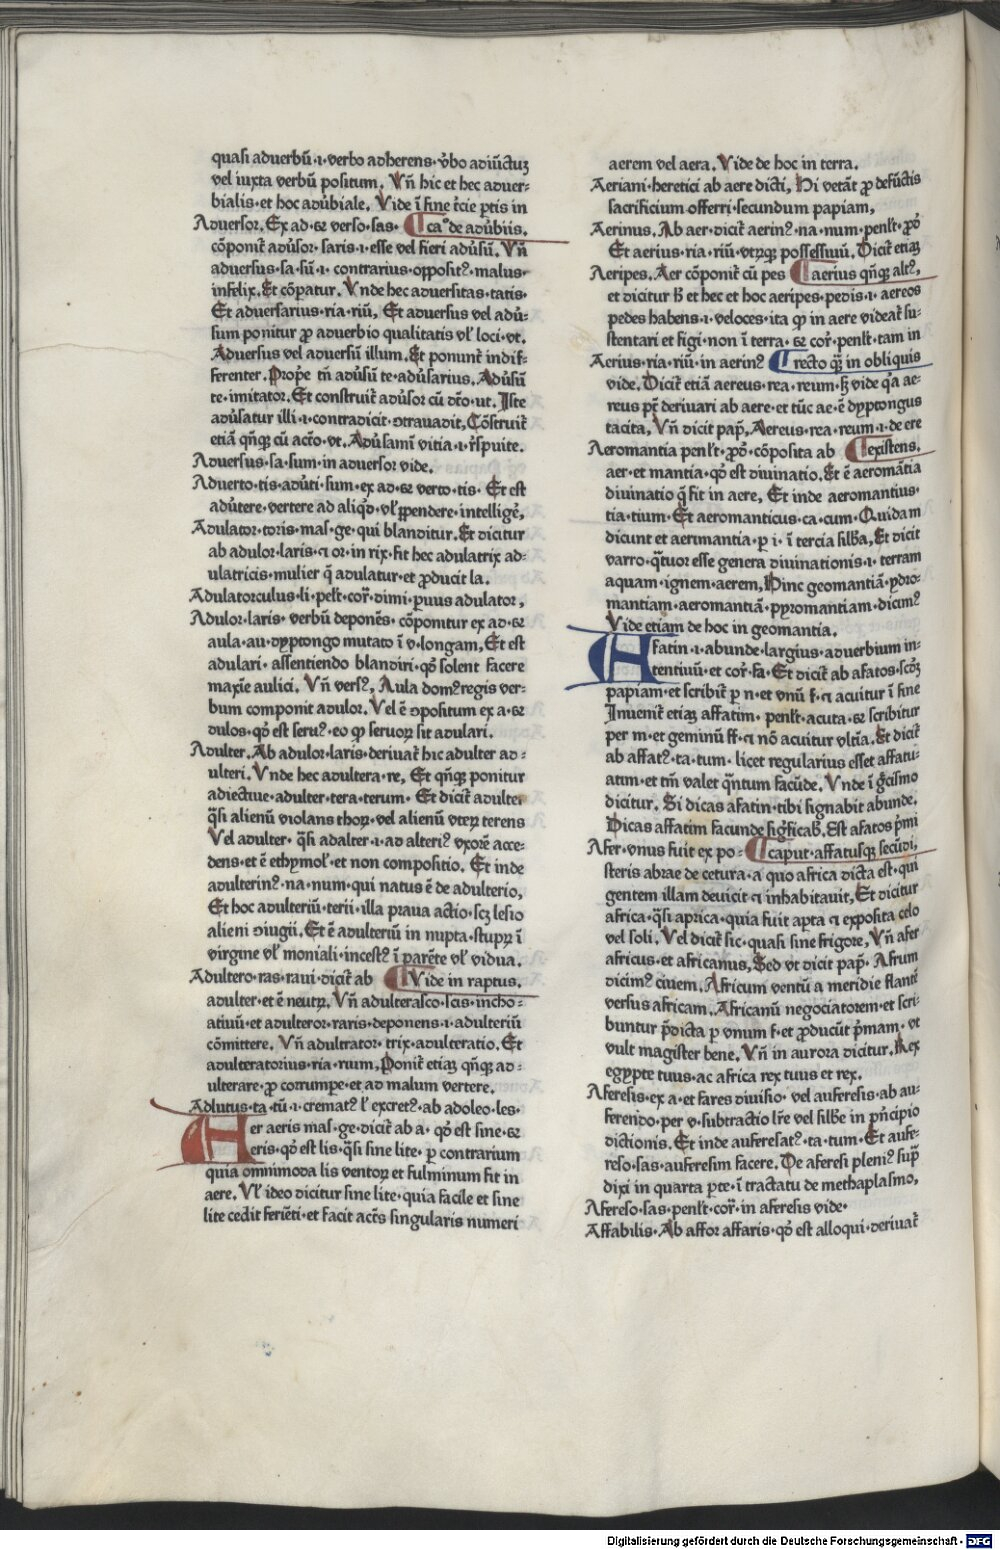 quasi aduerbiū·i·verbo adherens·v̄bo adiūctuꝫ
vel iuxta verbū positum. Vn̄ hic et hec aduer-
bialis·et hoc adūbiale. Vide ī fine t̄cie ꝑtis in
Aduersor. Ex ad·⁊ verso·sas· ¶ca° de adūbiis.
cōponit᷑ adūsor·saris·i·esse vel fieri adūsū. Vn̄
aduersus·sa·sū·i·contrarius·oppositꝰ·malus·
infelix. Et cōꝑatur. Vnde hec aduersitas·tatis·
Et aduersarius·ria·riū, Et aduersus vel adū-
sum ponitur ꝓ aduerbio qualitatis vl̓ loci·vt.
Aduersus vel aduersū illum. Et ponunt᷑ indif-
ferenter. Prop̄e tn̄ adūsū te·adūsarius. Adūsū
te·imitator. Et construit᷑ adūsor cū dt̄o·ut. Iste
adūsatur illi·i·contradicit·ꝯtrauadit, Cōstruit᷑
etiā qn̄qꝫ cū acto·vt. Adūsami vitia·i·r̄spuite.
Aduersus·sa·sum·in aduersor vide.
Aduerto·tis·adūti·sum·ex ad·⁊ verto·tis· Et est
adūtere·vertere ad aliqd̓·vl̓ ꝑpendere·intellige᷑,
Adulator·toris·mas·ge·qui blanditur. Et dicitur
ab adulor·laris·⁊ or·in rix·fit hec adulatrix ad-
ulatricis·mulier q̄ adulatur·et ꝓducit la.
Adulatorculus·li·pel̓t·cor᷑·dimi·ꝑuus adulator,
Adulor·laris· verbū deponēs· cōponitur ex ad·⁊
aula·au·dyptongo mutato ī v·longam, Et est
adulari·assentiendo blandiri·qd̓ solent facere
maxīe aulici. Vn̄ versꝰ, Aula domꝰ regis ver-
bum componit adulor. Vel ē ꝯpositum ex a·⁊
dulos·qd̓ est seruꝰ·eo ꝙ seruoꝝ sit adulari.
Adulter. Ab adulor·laris·deriuat᷑ hic adulter ad-
ulteri. Vnde hec adultera·re, Et qn̄qꝫ ponitur
adiectiue·adulter·tera·terum· Et dicit᷑ adulter
q̄si alienū violans thoꝝ·vel alienū vteꝝ terens
Vel adulter·q̄si adalter·i·ad alteriꝰ vxorē acce-
dens·et ē ethymol̓·et non compositio. Et inde
adulterinꝰ·na·num·qui natus ē de adulterio,
Et hoc adulteriū·terii·illa praua actio·scꝫ lesio
alieni ꝯiugii. Et ē adulteriū in nupta·stupꝝ ī
virgine vl̓ moniali·incestꝰ ī parēte vl̓ vidua.
Adultero·ras·raui·dicit᷑ ab ¶Vide in raptus.
adulter·et ē neutꝝ. Vn̄ adulterasco·scis·incho-
atiuū·et adulteror·raris·deponens·i·adulteriū
cōmittere. Vn̄ adultrator·trix·adulteratio. Et
adulteratorius·ria·rium, Ponit᷑ etiaꝫ qn̄qꝫ ad-
ulterare·ꝓ corrumꝑe·et ad malum vertere.
Adlutus·ta·tū·i·crematꝰ l̓ excretꝰ·ab adoleo·les·
Aer aeris mas·ge·dicit᷑ ab a·qd̓ est sine·⁊
eris·qd̓ est lis·q̄si sine lite·ꝑ contrarium
quia omnimoda lis ventoꝝ et fulminum fit in
aere. Vl̓ ideo dicitur sine lite·quia facile et sine
lite cedit feriēti·et facit act̄s singularis numeri
aerem vel aera. Vide de hoc in terra.
Aeriani·heretici ab aere dicti, Hi vetāt ꝓ defūctis
sacrificium offerri·secundum papiam,
Aerinus. Ab aer·dicit᷑ aerinꝰ·na·num·penl̓t·ꝓd̓
Et aerius·ria·riū·vtꝝqꝫ possessiuū. Dicit᷑ etiaꝫ
Aeripes. Aer cōponit᷑ cū pes ¶aerius qn̄qꝫ altꝰ,
et dicitur h̓ et hec et hoc aeripes·pedis·i·aereos
pedes habens·i·veloces·ita ꝙ in aere videat᷑ su-
stentari et figi·non ī terra·⁊ cor᷑·penl̓t·tam in
Aerius·ria·riū·in aerinꝰ ¶recto qꝫ in obliquis
vide. Dicit᷑ etiā aereus·rea·reum·sꝫ vide qꝛ ae-
reus pt̄ deriuari ab aere·et tūc ae·ē dyptongus
tacita, Vn̄ dicit pap̄, Aereus·rea·reum·i·de ere
Aeromantia penl̓t·ꝓd̓·cōposita ab ¶existens.
aer·et mantia·qd̓ est diuinatio. Et ē aeromātia
diuinatio q̄ fit in aere, Et inde aeromantius·
tia·tium· Et aeromanticus·ca·cum· Quidam
dicunt et aerimantia·ꝑ i·ī tercia sillba, Et dicit
varro·q̄tuor esse genera diuinationis·i·terram
aquam·ignem·aerem, Hinc geomantiā·ydro-
mantiam·aeromantiā·pyromantiam·dicimꝰ
Vide etiam de hoc in geomantia.
Afatin·i·abunde·largius·aduerbium in-
tentiuū·et cor᷑·fa·Et dicit᷑ ab afatos·scd̓ꝫ
papiam·et scribit᷑ ꝑ n·et vnū f·⁊ acuitur ī fine
Inuenit᷑ etiaꝫ affatim·penl̓t·acuta·⁊ scribitur
per m·et geminū ff·⁊ nō acuitur vltīa. Et dicit᷑
ab affatꝰ·ta·tum·licet regularius esset affatu-
atim·et tm̄ valet qn̄tum facūde. Vnde ī g̓cismo
dicitur. Si dicas afatin·tibi signabit abunde.
Dicas affatim facunde sig̓ficab̓. Est afatos pīmi
Afer·vnus fuit ex po- ¶caput·affatusqꝫ secūdi,
steris abrae de cetura·a quo africa dicta est·qui
gentem illam deuicit ⁊ inhabitauit, Et dicitur
africa·q̄si aprica·quia fuit aꝑta ⁊ exposita celo
vel soli. Vel dicit᷑ sic·quasi sine frigore, Vn̄ afer
africus·et africanus, Sed vt dicit pap̄·Afrum
dicimꝰ ciuem. Africum ventū a meridie flantē
versus africam. Africanū negociatorem·et scri-
buntur p̄dicta ꝑ vnum f·et ꝓducūt p̄mam·vt
vult magister bene. Vn̄ in aurora dicitur. Rex
egypte tuus·ac africa rex tuus et rex.
Aferesis·ex a·et fares diuisio·vel auferesis·ab au-
ferendo·per v·subtractio lr̄e vel sillb̄e in pn̄cipio
dictionis. Et inde auferesatꝰ·ta·tum·Et aufe-
reso·sas·auferesim facere. De aferesi pleniꝰ sup̄
dixi in quarta ꝑte·ī tractatu de methaplasmo,
Afereso·sas·penl̓t·cor᷑·in aferesis vide·
Affabilis·Ab affor affaris·qd̓ est alloqui·deriuat᷑
Digitalisierung gefördert durch die Deutsche Forschungsgemeinschaft - DFG